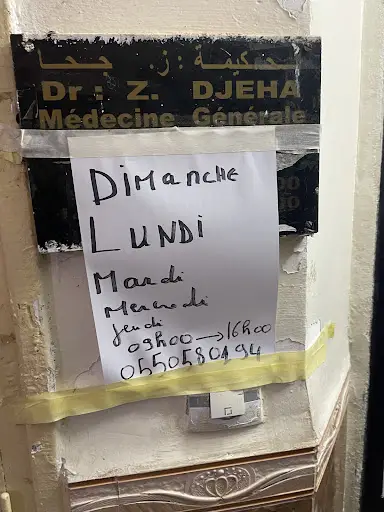 الحكيمة : ز. جحا
Dr : Z. DJEHA
Médecine Générale
DimancHE
LUNDi
Mardi
Mercredi
jeudi
09h00 → 16h00
0550580194